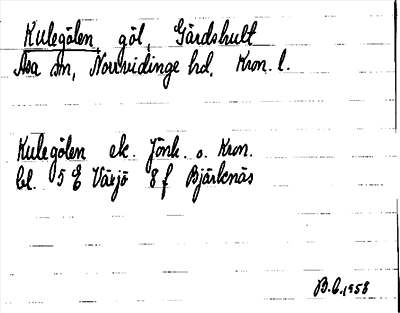 Kulegölen, göl, Gårdshult
Asa sn, Norrvidinge hd, Kron. l.
Kulegölen ek. Jönk. o. Kron.
bl. 5 E Växjö 8 f Bjärknäs
B.C. 1958